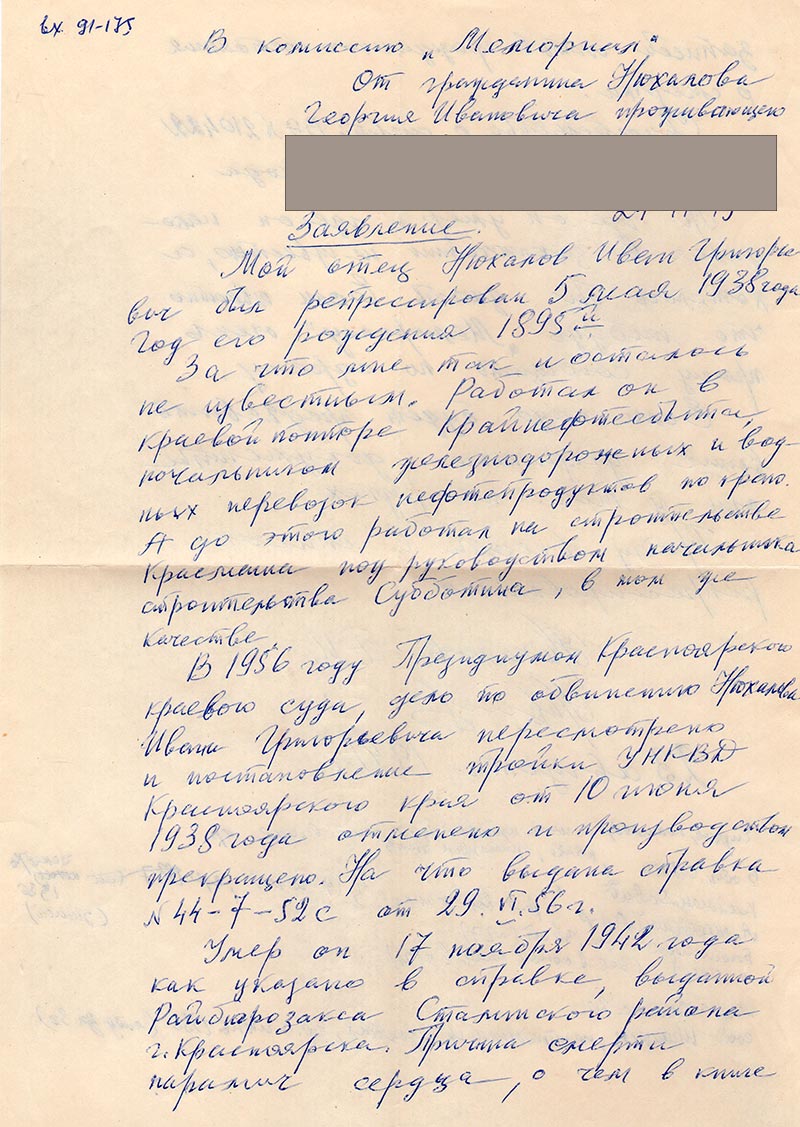 вх. 91-175
В комиссию „Мемориал"
От гражданина Нюхалова
Георгия Ивановича проживающего
Заявление.
Мой отец Нюхалов Иван Григорье
вич был репрессирован 5 мая 1938 года
Год его рождения 1895й
За что мне так и осталось
не известным. Работал он в
краевой конторе Крайнефтесбыта,
начальником железнодорожных и вод-
ных перевозок нефтепродуктов по краю.
А до этого работал на строительстве
Красмаша под руководством начальника
строительства Субботина, в том же
качестве.
В 1956 году Президиумом Красноярского
краевого суда, дело по обвинению Нюхалова
Ивана Григорьевича пересмотрено
и постановление тройки УНКВД
Красноярского края от 10 июня
1938 года отменено и производством
прекращено. На что выдана справка
N 44-7-52с от 29.VI.56 г.
Умер он 17 ноября 1942 года
как указано в справке, выданной
Райбюрозакса Сталинского района
г. Красноярска. Причина смерти
паралич сердца, о чем в книге